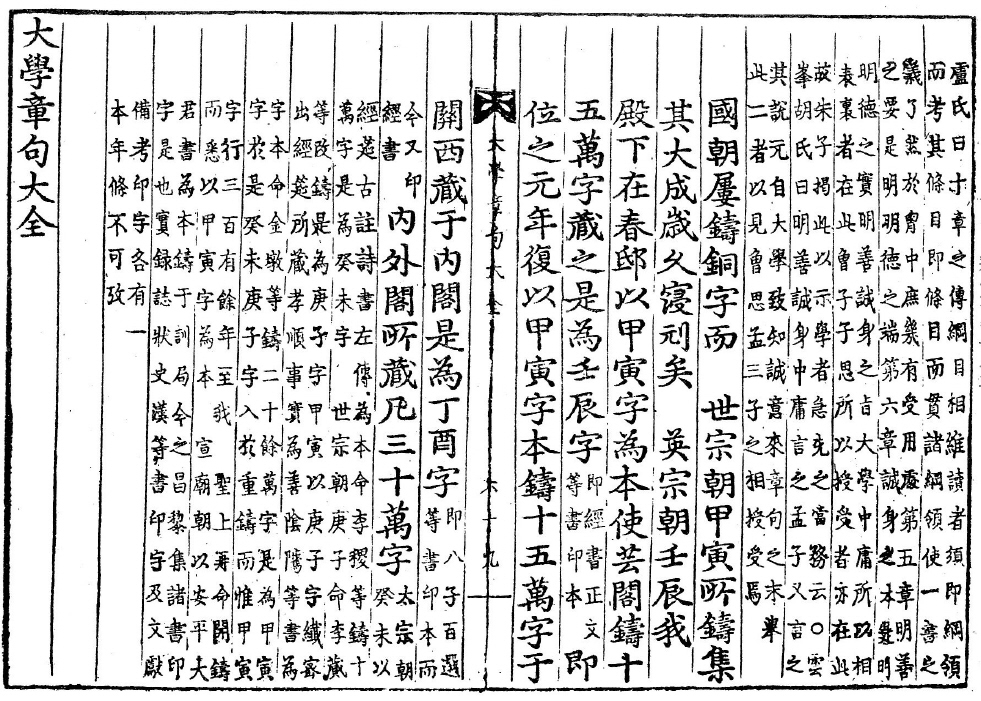 盧氏曰十章之傳綱目相維讀者須即綱領
而考其條目即條目而貫諸綱領使一書之
義了然於胷中庶幾有受用處第五章明善
之要是明明德之端第六章誠身之本是明
明德之實明善誠身之旨大學中庸所以相
表裏者在此曾子子思所以授受者亦在此
故朱子揭此以示學者急先之當務云○雲
峯胡氏曰明善誠身中庸言之孟子又言之
其說元自大學致知誠意來章句之末舉
此二者以見曾思孟三子之相授受焉
國朝屢鑄銅字而 世宗朝甲寅所鑄集
其大成歲久寖刓矣 英宗朝壬辰我
殿下在春邸以甲寅字為本使芸閣鑄十
五萬字藏之是為壬辰字 即經書正文 等書印本 即
位之元年復以甲寅字本鑄十五萬字于
大學章句大全 六十九
關西藏于內閣是為丁酉字 即八子百選 等書印本而
今又印 經書 內外閣所藏凡三十萬字 太宗朝 癸未以
經筵古註詩書左傳為本命李稷等鑄十
萬字是為癸未字 世宗朝庚子命李蕆
等改鑄是為庚子字甲寅以庚子字纖密
出經筵所藏孝順事實為善陰騭等書為
字本命金墩等鑄二十餘萬字是為甲寅
字於是癸未庚子字入於重鑄而惟甲寅
字行三百有餘年至我 聖上再命開鑄
而悉以甲寅字為本 宣廟朝以安平大
君書為本鑄于訓局今之昌黎集諸書印
字是也實錄誌狀史漢等書印字及文獻
備考印字各有一
本年條不可攷
大學章句大全